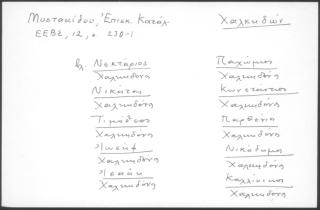 Μυστακίδου, Ἐπισκ. Κατάλ.
ΕΕΒΣ, 12, σ. 230-1
Χαλκηδών
βλ. Νεκτάριος
Χαλκηδόνος
Νικήτας
Χαλκηδόνος
Τιμόθεος
Χαλκηδόνος
Ἰωσήφ
Χαλκηδόνος
Ἰσαάκ
Χαλκηδόνος
Παχώμιος
Χαλκηδόνος
Κωνσταντῖνος
Χαλκηδόνος
Παρθένιος
Χαλκηδόνος
Νικόδημος
Χαλκηδόνος
Καλλίνικος
Χαλκηδόνος